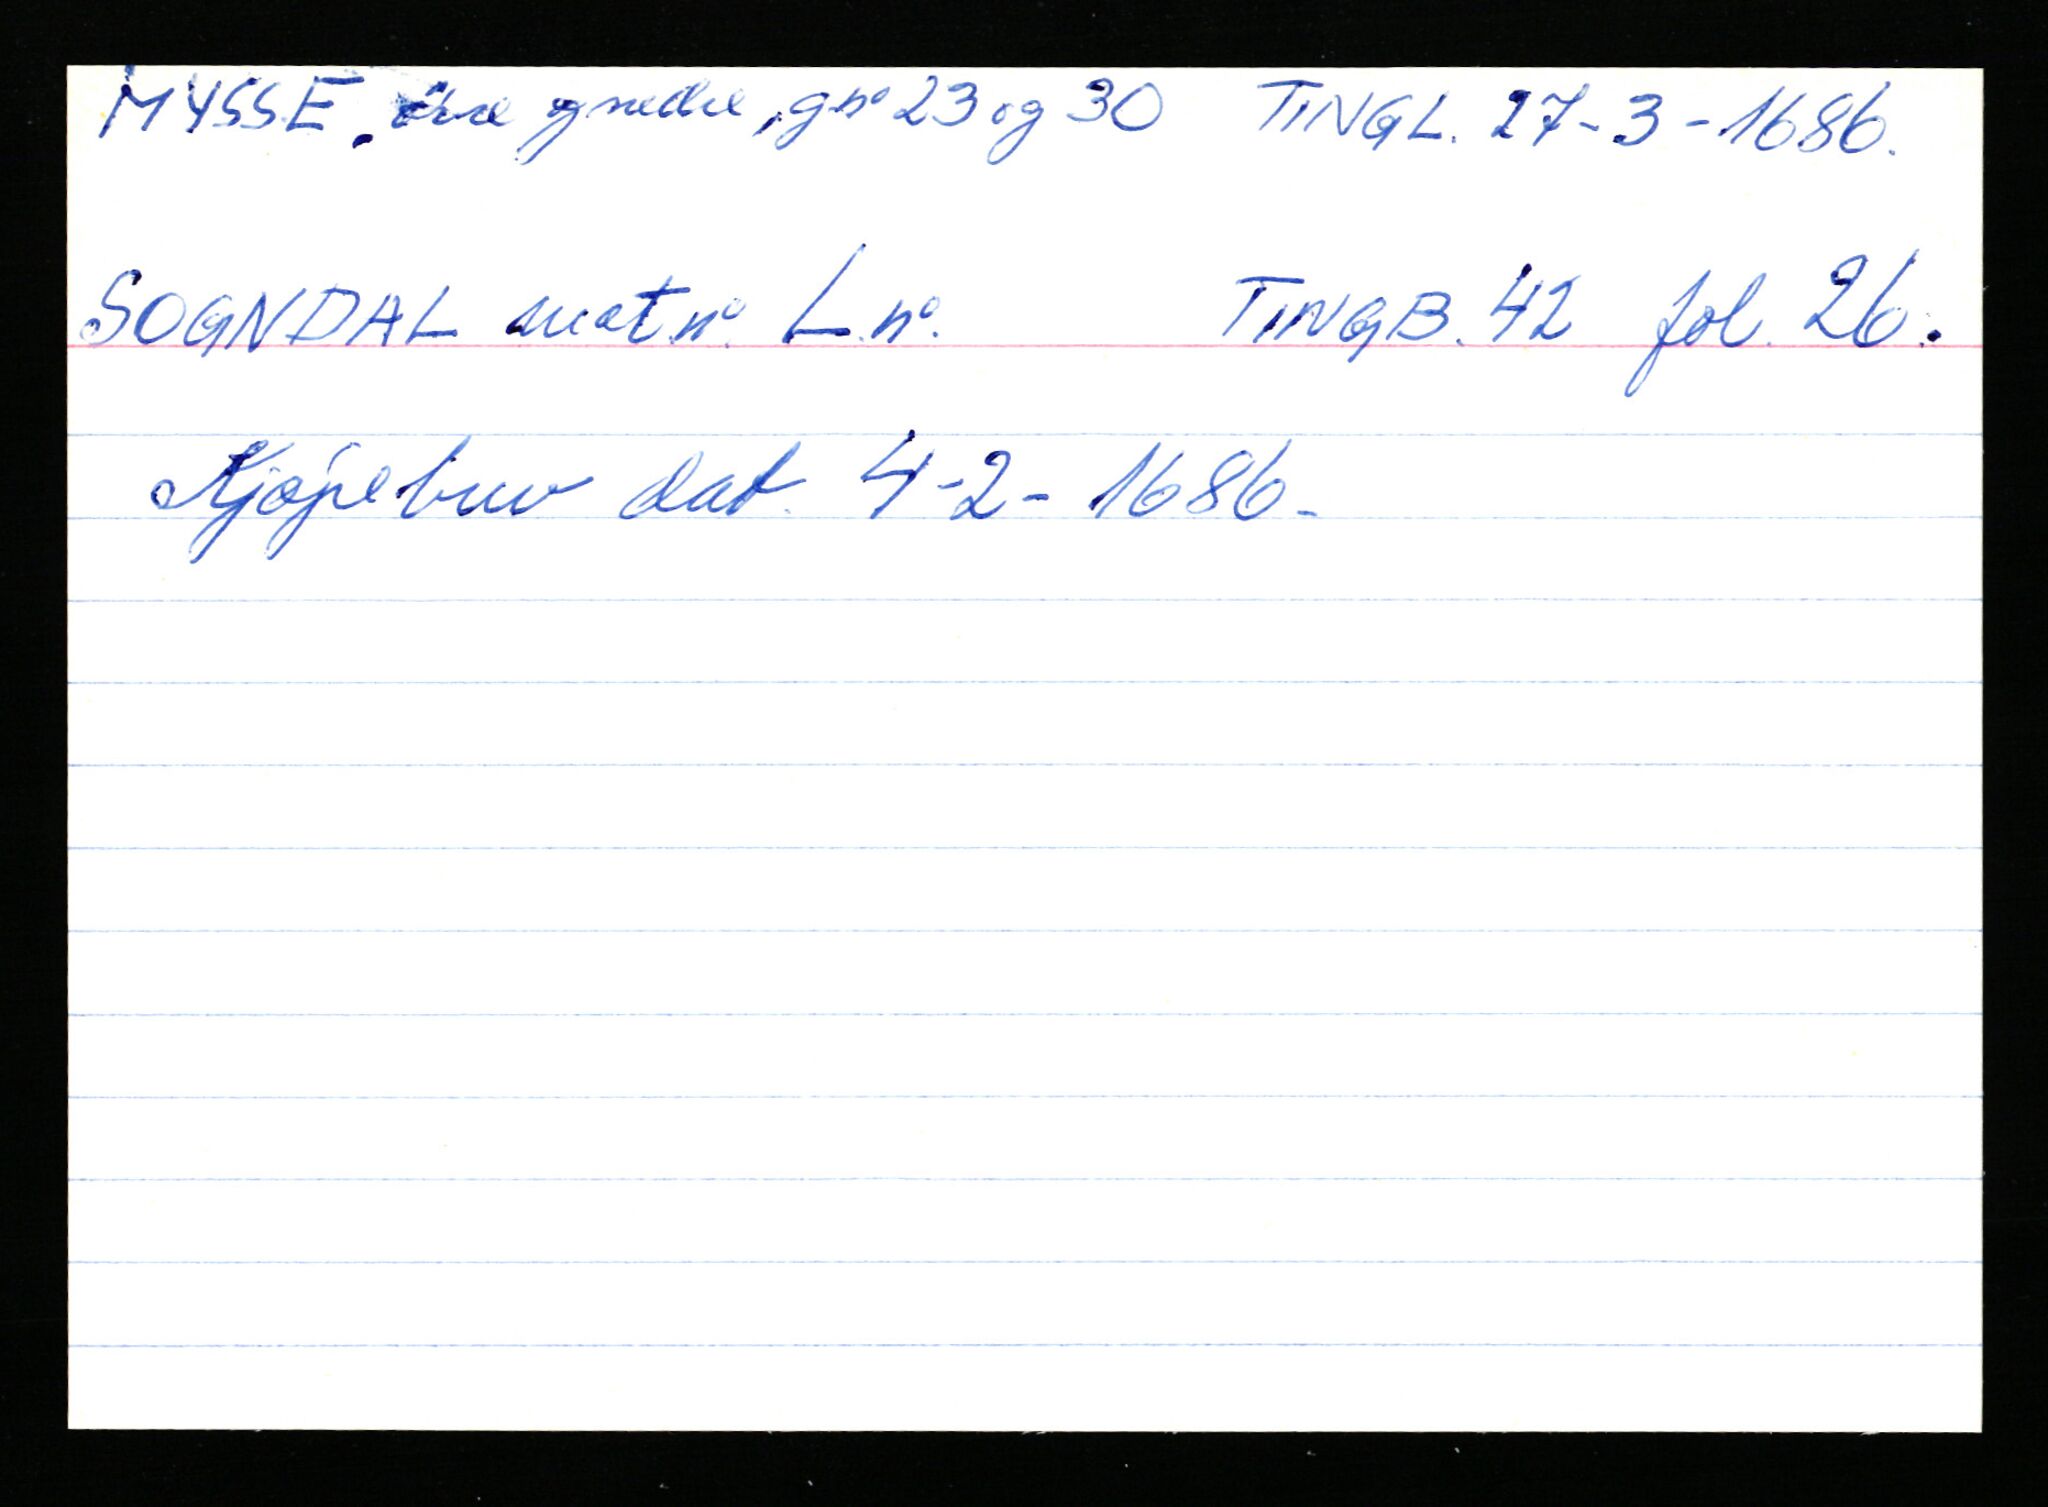 MYSSE. övre og nedre, gnº 23 og 30 TINGL. 27-3-1686.
SOGNDAL mat.nº. L.nº. TINGB. 42 fol. 26.
Kjøpebrev dat. 4-2-1686.